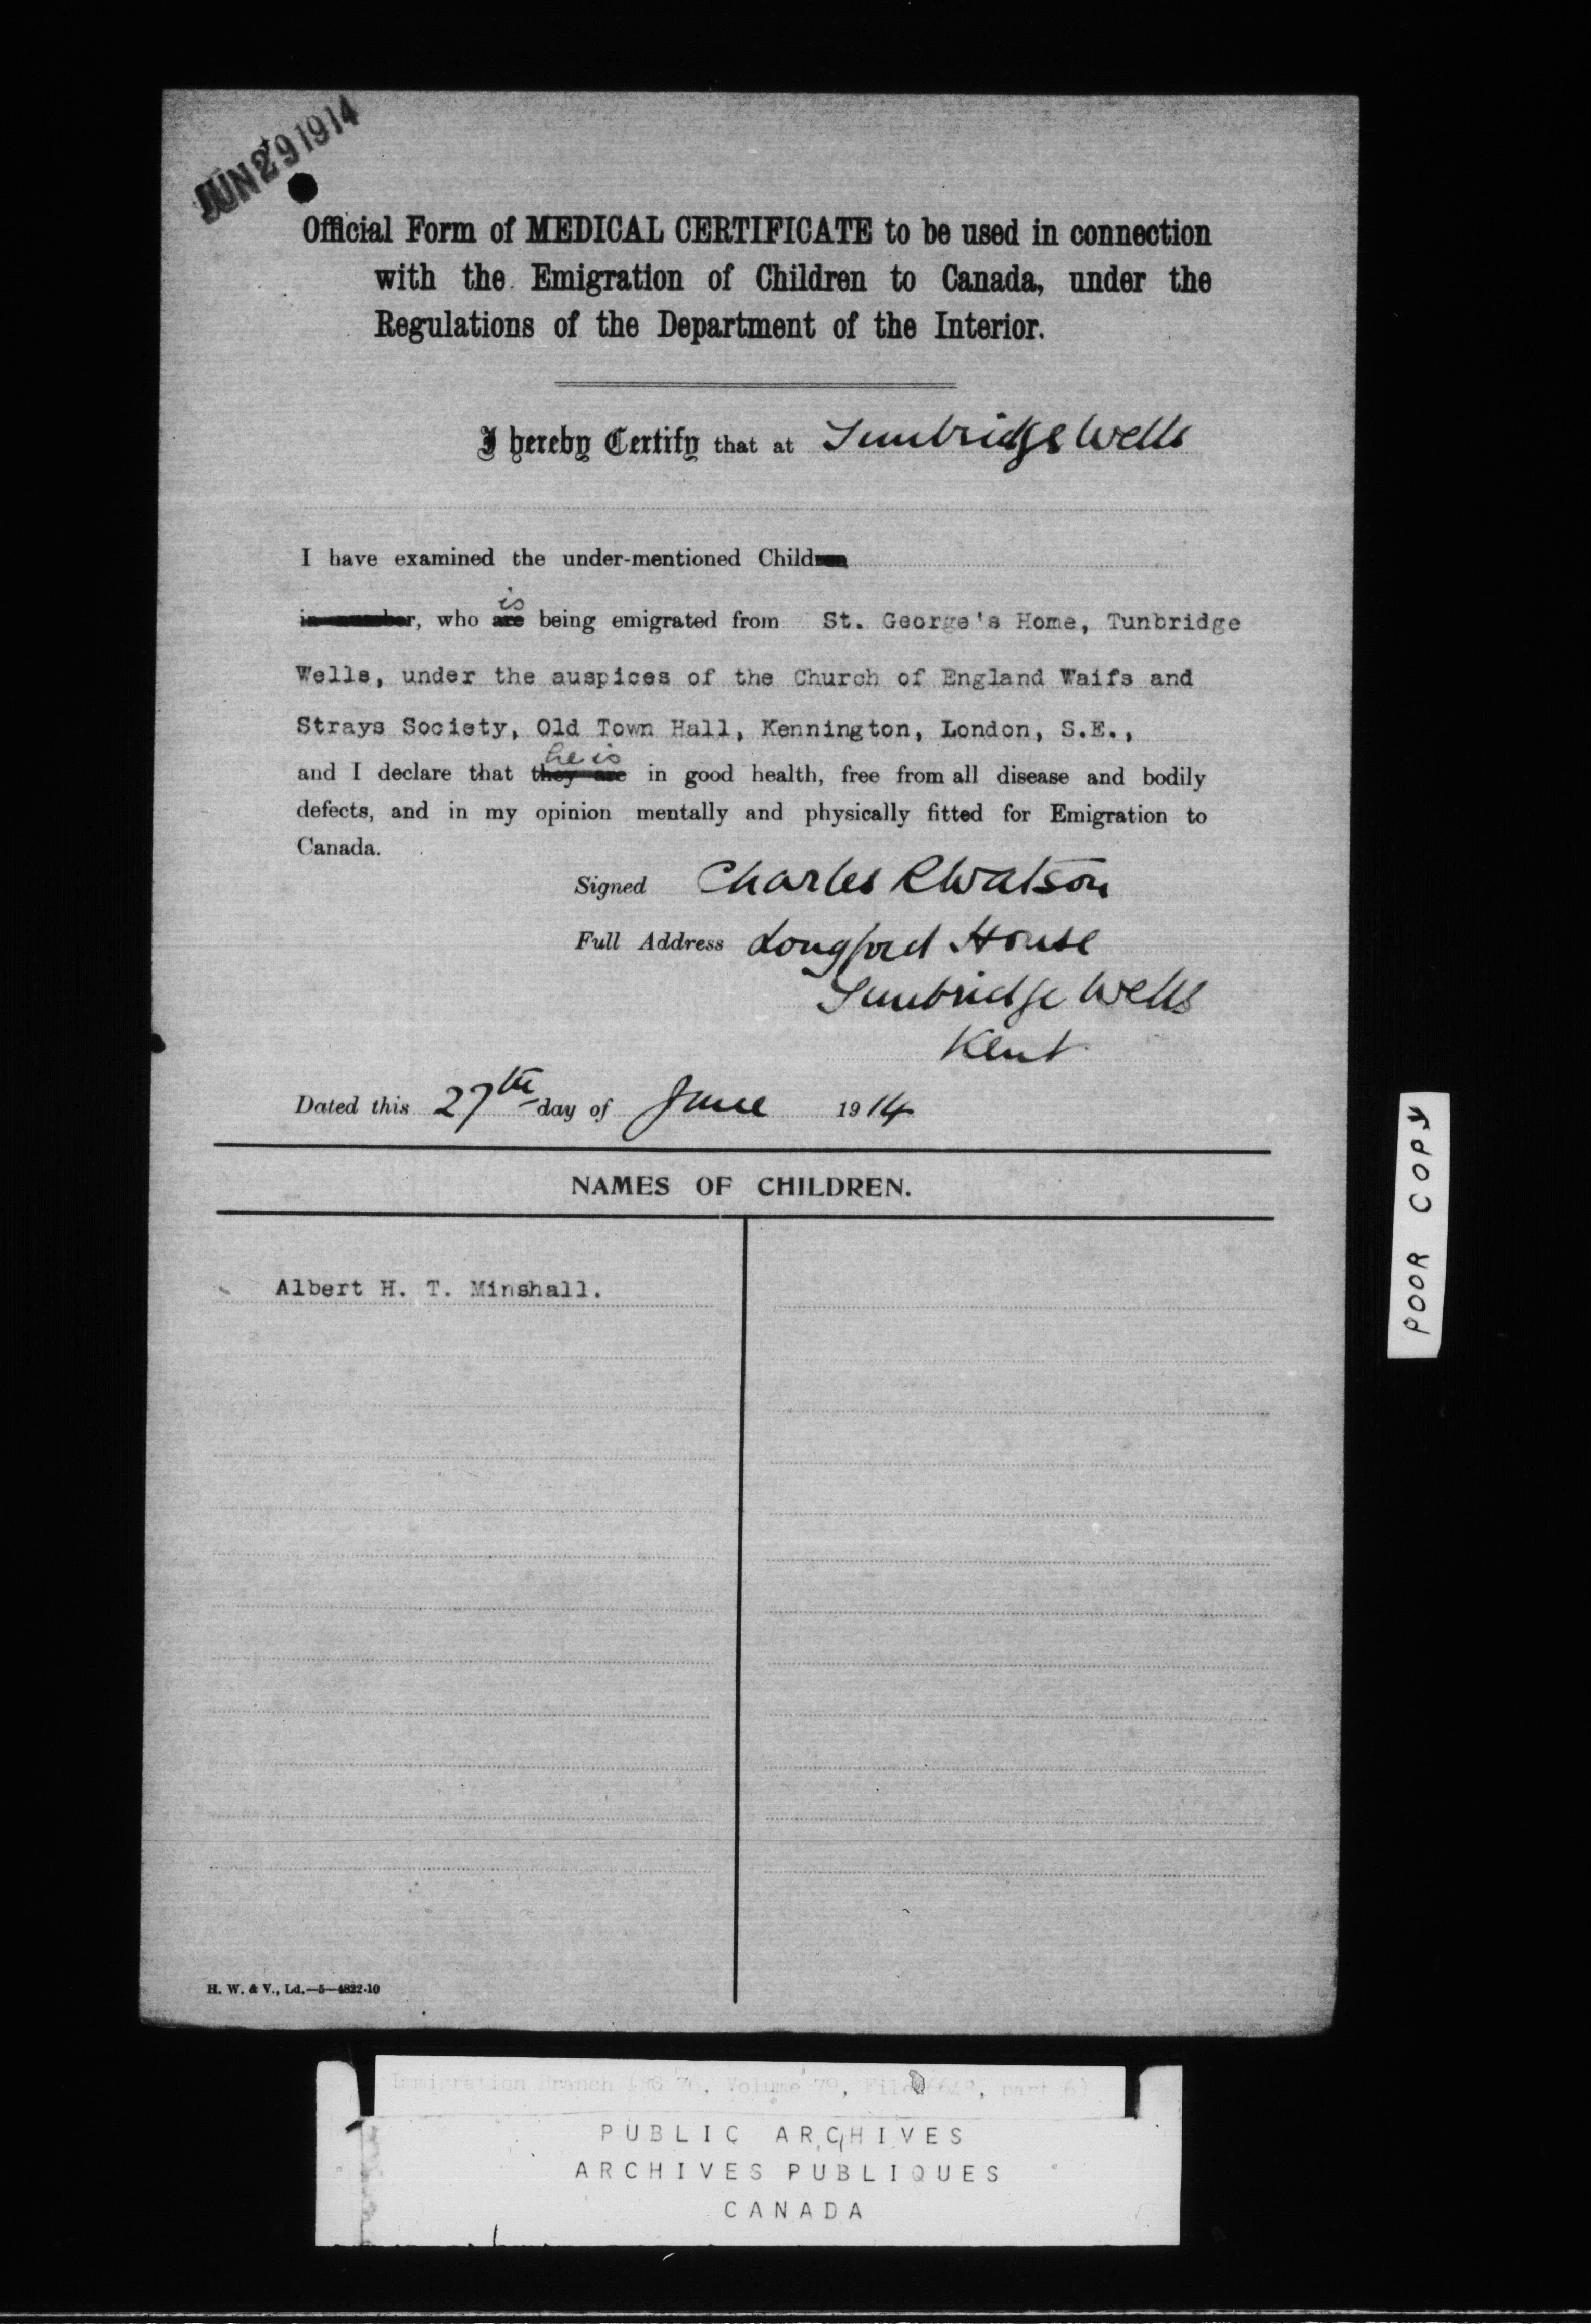 JUN 29 1914
Official Form of MEDICAL CERTIFICATE to be used in connection
with the Emigration of Children to Canada, under the
Regulations of the Department of the Interior.
I hereby Certify that at Tunbridge Wells
I have examined the under-mentioned Children
in number, who are is being emigrated from St. George's Home, Tunbridge
Wells, under the auspices of the Church of England Waifs and
Strays Society, Old Town Hall, Kennington, London, S.E.,
and I declare that they are he is in good health, free from all disease and bodily
defects, and in my opinion mentally and physically fitted for Emigration to
Canada.
Signed Charles R Watson
Full Address Longford House
Tunbridge Wells
Kent
Dated this 27th day of June 1914
NAMES OF CHILDREN.
Albert H. T. Minshall.
H. W. & V., Ld.—5—4822-10
POOR COPY
Immigration Branch (RG 76, Volume 79, File, part 6)
PUBLIC ARCHIVES
ARCHIVES PUBLIQUES
CANADA